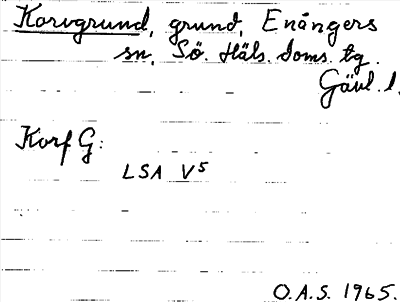 Korvgrund, grund, Enångers
sn, Sö. Häls. doms. tg.
Gävl. l.
Korf G:
LSA V5
O.A.S. 1965.